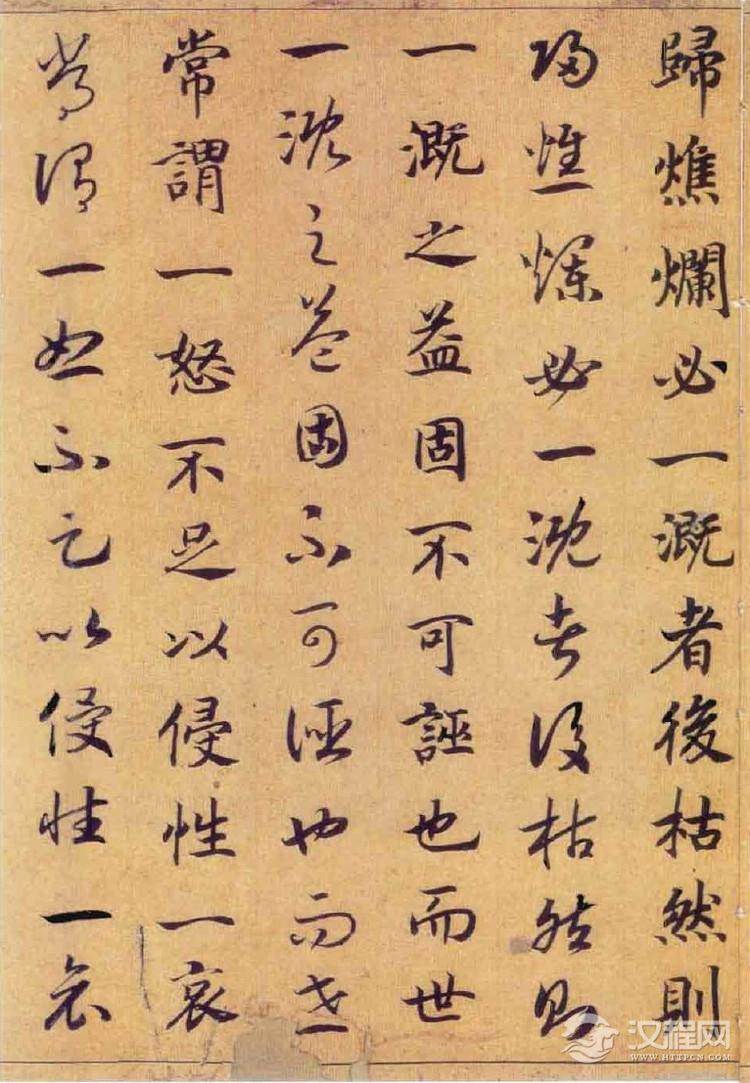 歸燋爛必一溉者後枯然則
歸燋爛必一溉者後枯然則
一溉之益固不可誣也而世
一溉之益固不可誣也而世
常謂一怒不足以侵性一哀
常謂一怒不足以侵性一哀
汉程网
WWW.HTTPCN.COM